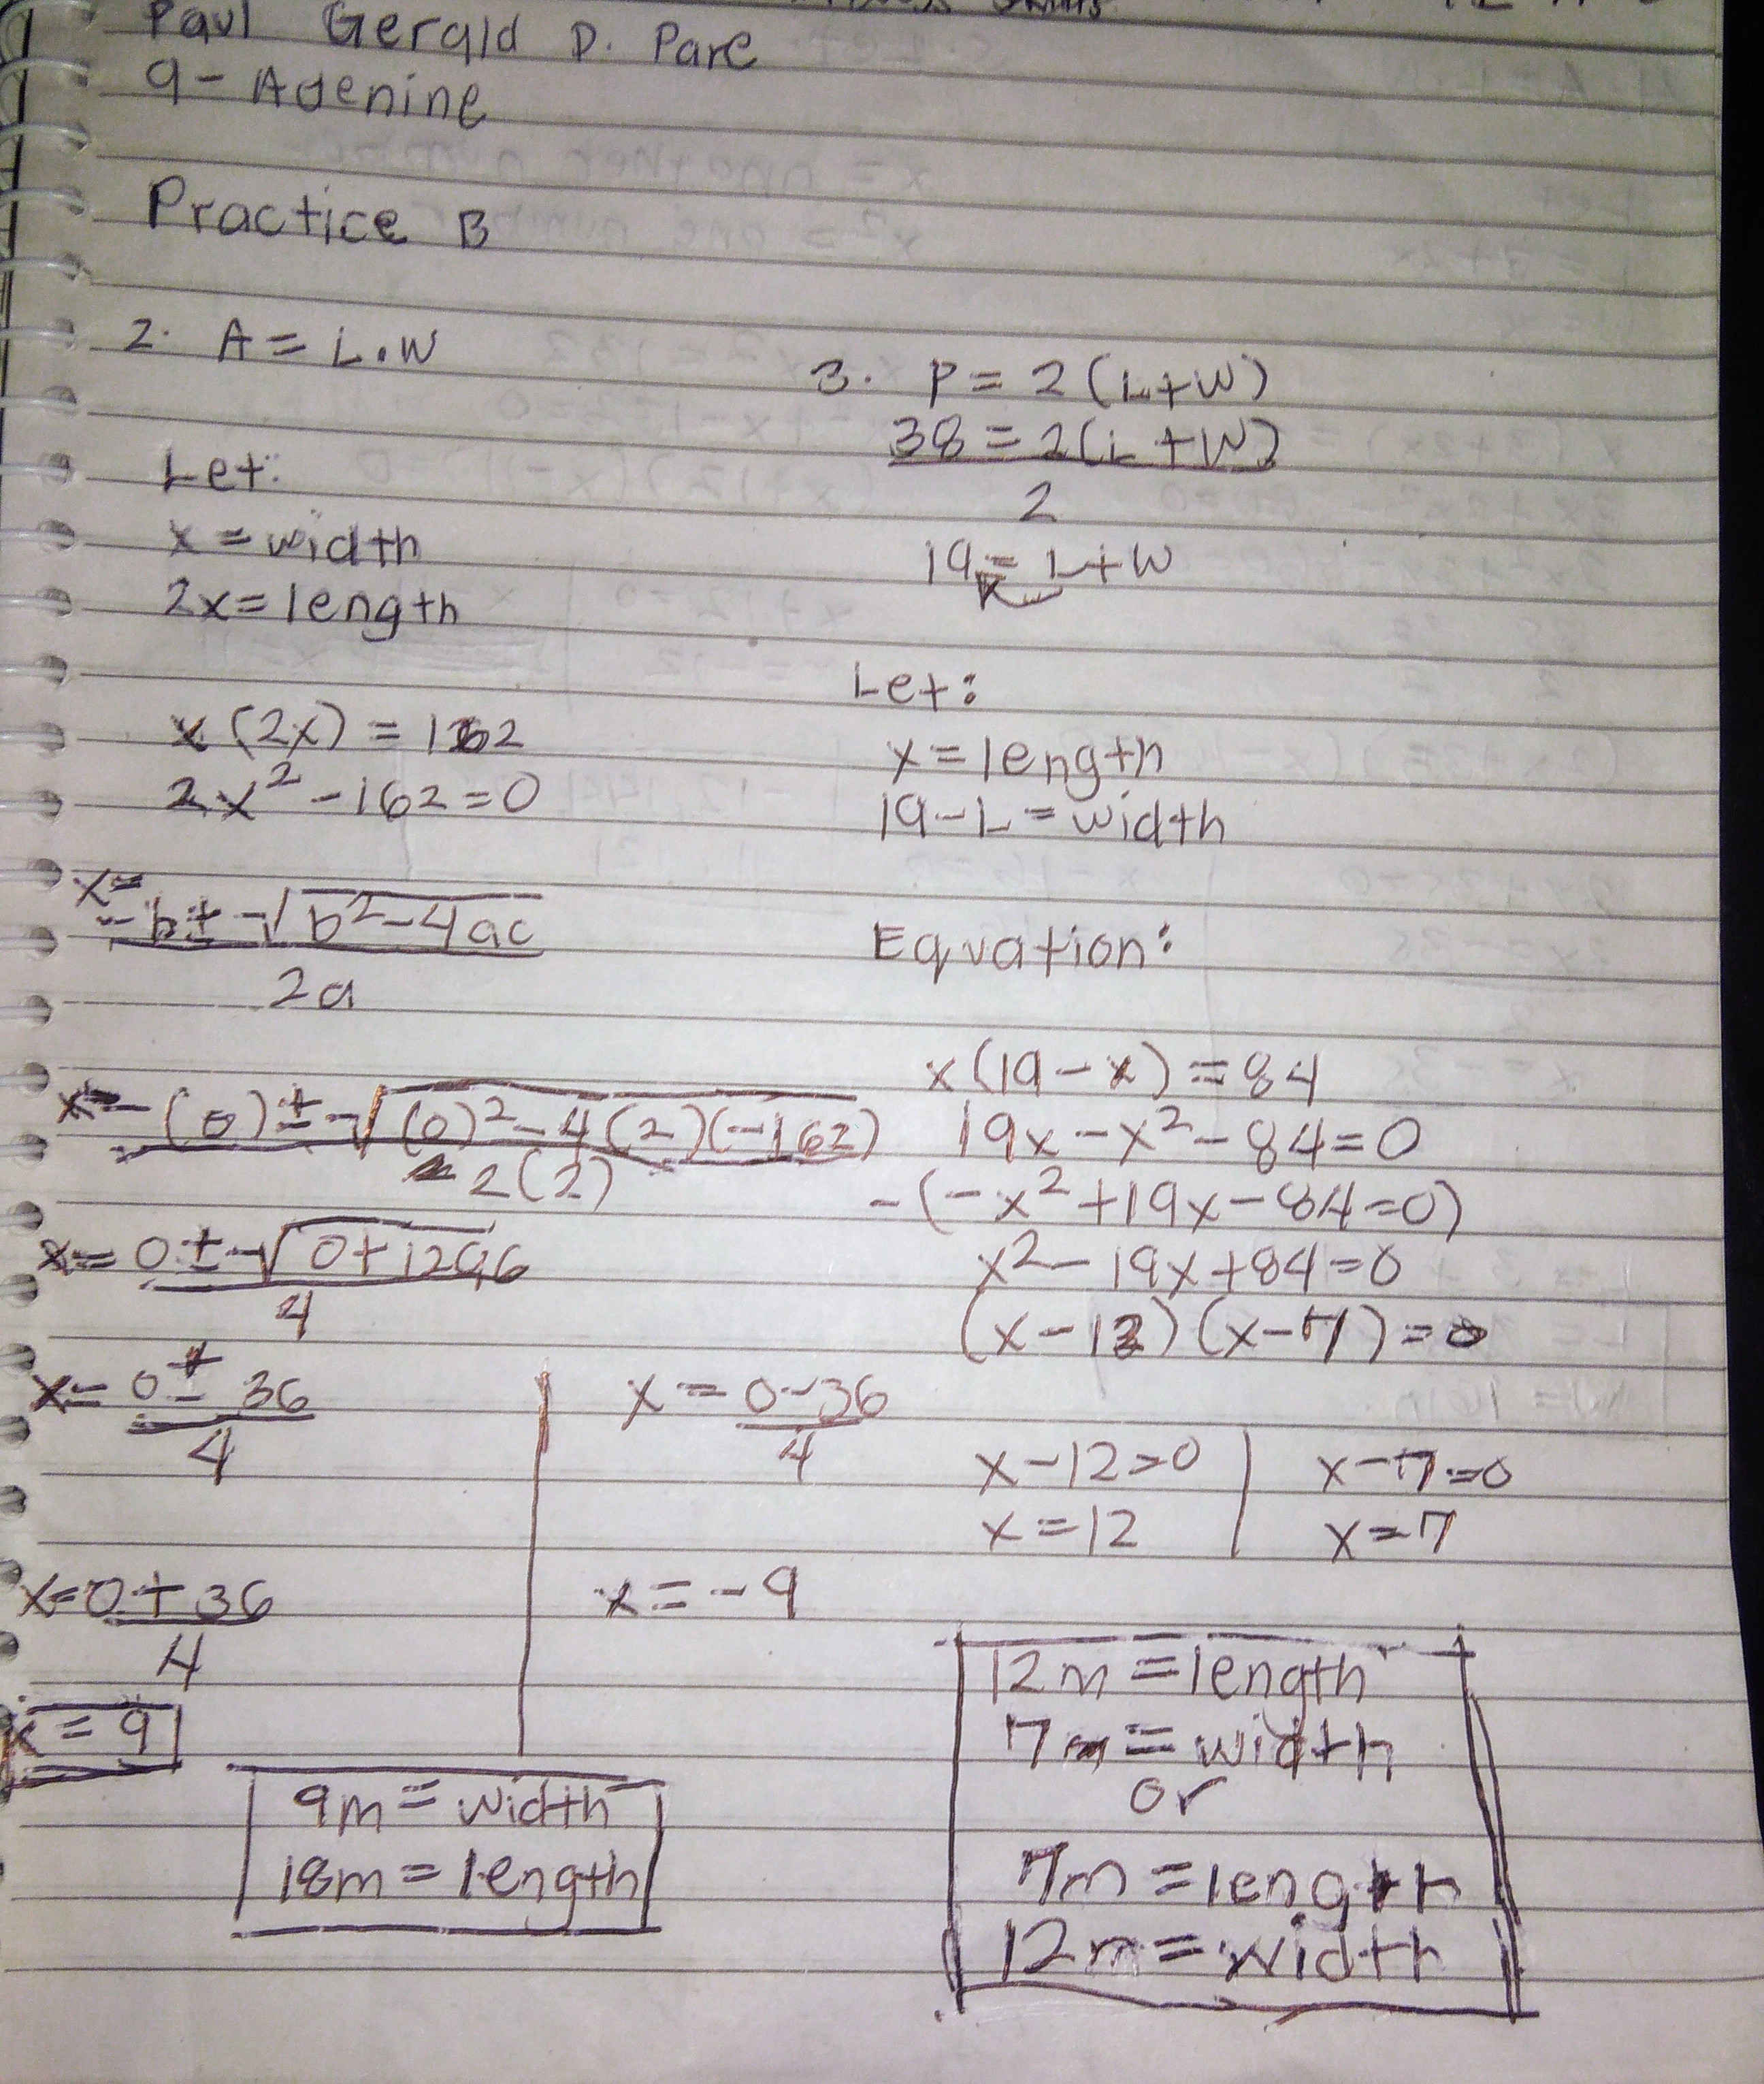 Paul Gerald D. Pare
9 - Adenine
Practice B
2. A = L.W
Let:
x = width
2x = length
x (2x) = 162
2x² - 162 = 0
x =
-b ± √b² - 4ac
2a
x = -(0) ± √(0)² - 4(2)(-162)
2(2)
x = 0 ± √0 + 1296
4
x = 0 ± 36
4
x = 0 + 36
4
x = 9
x = 0 - 36
4
x = -9
9m = width
18m = length
3. P = 2(L+W)
38 = 2(L+W)
2
19 = L+W
Let:
x = length
19 - L = width
Equation:
x(19 - x) = 84
19x - x² - 84 = 0
-(-x² + 19x - 84 = 0)
x² - 19x + 84 = 0
(x - 12)(x - 7) = 0
x - 12 = 0
x = 12
x - 7 = 0
x = 7
12m = length
7m = width
or
7m = length
12m = width